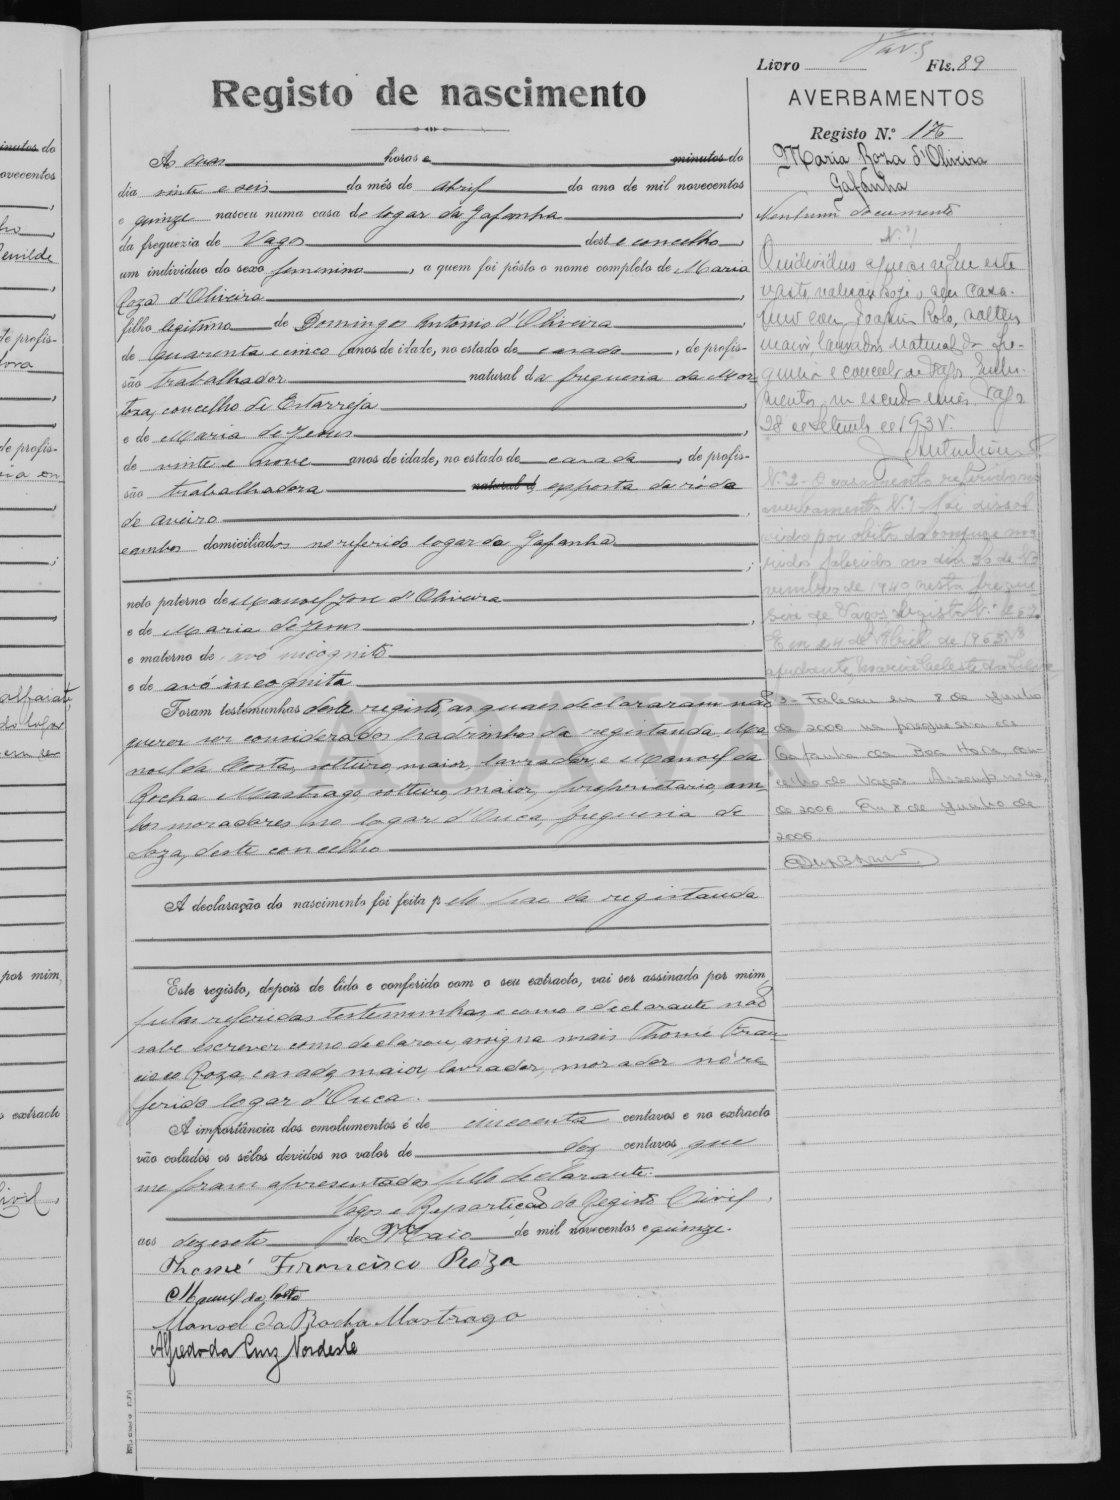 Livro Fls. 89
Registo de nascimento
AVERBAMENTOS
Registo N.º 176
Maria Roza d'Oliveira
Gafanha
Nenhum documento
N.º 1
O individuo a que se refere este
registo realizou hoje o seu casa-
mento com Joaquim Rolo, solteiro
maior, lavrador natural da fre-
guesia e concelho de Vagos
Vagos
28 de
N.º 2 - O casamento referido no
averbamento N.º 1 foi dissol-
vido por óbito do conjuge ma-
rido falecido no dia 30 de No-
vembro de 1940 nesta fregue-
sia de Vagos. Registo N.º
Em 24 de Abril de 1963. A
ajudante, Maria Celeste da
3 - Faleceu em 8 de Junho
de 2000 na freguesia de
Gafanha da Boa Hora, con-
celho de Vagos. Assento n.º
de 2000. Em 8 de Junho de
2000.
Ás duas horas e minutos do
dia vinte e seis do mês de Abril do ano de mil novecentos
e quinze nasceu numa casa do logar da Gafanha,
da freguezia de Vagos deste concelho,
um individuo do sexo feminino, a quem foi pôsto o nome completo de Maria
Roza d'Oliveira,
filho legitimo de Domingos Antonio d'Oliveira,
de quarenta e cinco anos de idade, no estado de casado, de profis-
são trabalhador natural da freguesia da Mor-
toza, concelho de Estarreja,
e de Maria de Jesus,
de vinte e nove anos de idade, no estado de casada, de profis-
são trabalhadora natural d exposta da róda
de Aveiro,
e ambos domiciliados no referido logar da Gafanha
;
neto paterno de Manoel José d'Oliveira
e de Maria de Jesus,
e materno de avô incognito
e de avó incognita.
Foram testemunhas deste registo, as quaes declararam não
querer ser considerados padrinhos da registanda, Ma-
noel da Costa, solteiro, maior, lavrador, e Manoel da
Rocha Mastrago, solteiro, maior, proprietario, am-
bos moradores no logar d'Ouca, freguesia de
Soza, deste concelho
A declaração do nascimento foi feita pelo pae da registanda
Este registo, depois de lido e conferido com o seu extracto, vai ser assinado por mim,
pelas referidas testemunhas, e como o declarante não
sabe escrever como declarou, assigna mais Thomé Fran-
cisco Roza, casado, maior, lavrador, morador no re-
ferido logar d'Ouca.
A importância dos emolumentos é de cincoenta centavos e no extracto
vão colados os sêlos devidos no valor de dez centavos, que
me foram apresentados pelo declarante.
Vagos e Repartição do Registo Civil,
aos dezesete de Maio de mil novecentos e quinze.
Thomé Francisco Roza
Manuel da Costa
Manoel da Rocha Mastrago
Alfredo da Cruz Nordeste
ADAVR